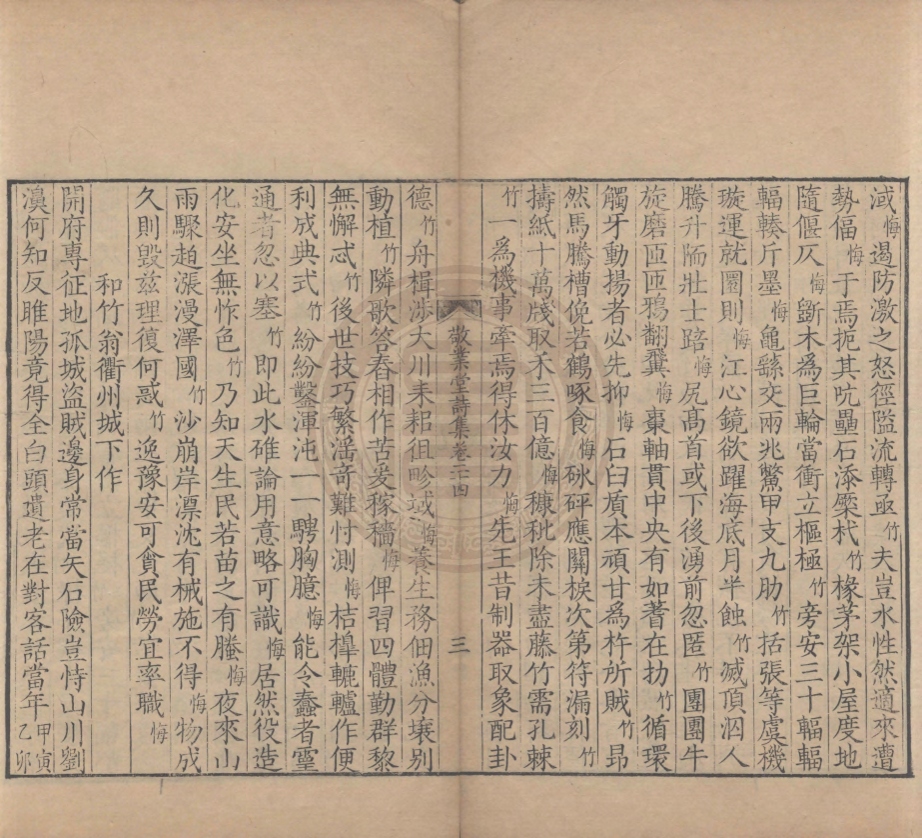 淢悔遏防激之怒徑隘流轉亟竹夫豈水性然適來遭
勢偪悔于焉扼其吭壘石添椞杙竹椽茅架小屋度地
隨偃仄悔斲木爲巨輪當衝立樞極竹旁安三十輻輻
輻輳斤墨悔龜繇交兩兆鼈甲支九肋竹括張等虞機
璇運就圜則悔江心鏡欲躍海底月半蝕竹滅頂泅人
騰升陑壯士踣悔尻高首或下後湧前忽匿竹團團牛
旋磨匝匝鴉翻翼悔棗軸貫中央有如蓍在扐竹循環
觸牙動揚者必先抑悔石臼質本頑甘爲杵所賊竹昂
然馬騰槽俛若鶴啄食悔砅砰應關棙次第符漏刻竹
擣紙十萬牋取禾三百億悔穅秕除未盡藤竹需孔棘
竹一爲機事牽焉得休汝力悔先王昔制器取象配卦
敬業堂詩集卷二十四
三
德竹舟楫涉大川耒耜徂畛域悔養生務佃漁分壤別
動植竹隣歌答舂相作苦爰稼穡悔俾習四體勤群黎
無懈忒竹後世技巧繁滛竒難忖測悔桔橰轆轤作便
利成典式竹紛紛鑿渾沌一一騁胸臆悔能令蠢者靈
通者忽以塞竹即此水碓論用意略可識悔居然役造
化安坐無怍色竹乃知天生民若苗之有螣悔夜來山
雨驟趈漲漫澤國竹沙崩岸漂沈有械施不得悔物成
久則毀茲理復何惑竹逸豫安可貪民勞宜率職悔
和竹翁衢州城下作
開府專征地孤城盜賊邊身常當矢石險豈恃山川劉
濞何知反睢陽竟得全白頭遺老在對客話當年甲寅乙卯